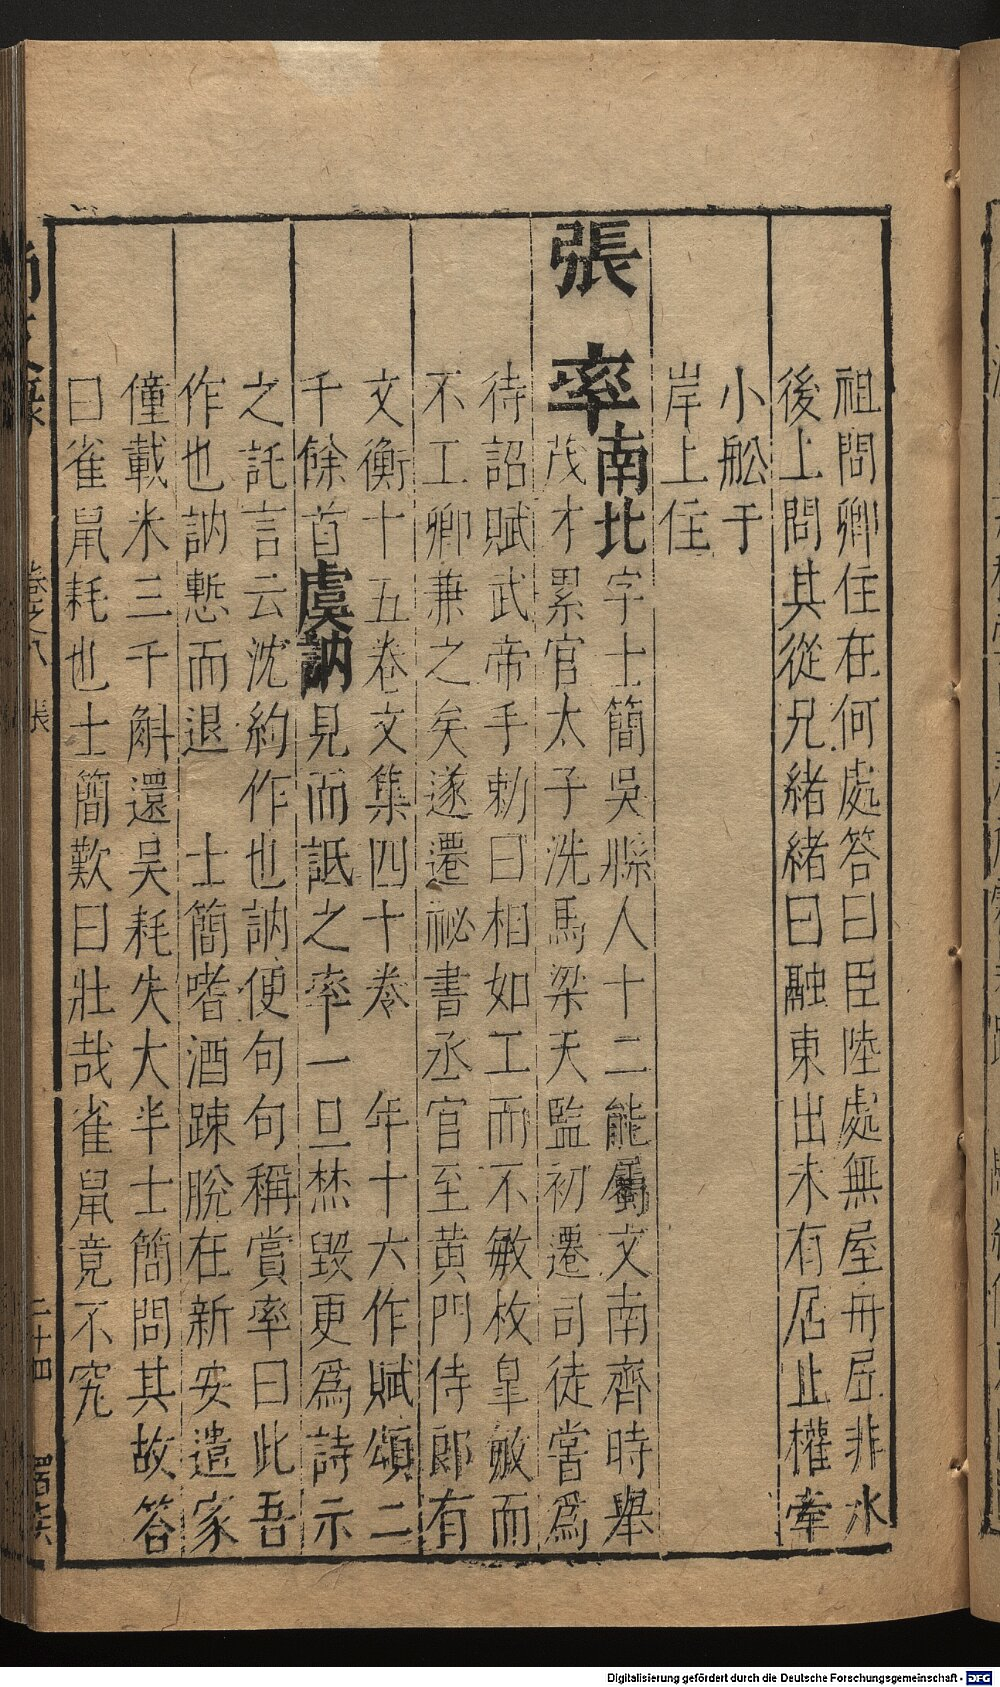 祖問卿住在何處答曰臣陸處無屋舟居非水
後上問其從兄緒緒曰融東出未有居止權牽
小舩于
岸上住
張率南北字士簡吳縣人十二能屬文南齊時舉
茂才累官太子洗馬梁天監初遷司徒嘗爲
待詔賦武帝手勅曰相如工而不敏枚皐敏而
不工卿兼之矣遂遷祕書丞官至黄門侍郎有
文衡十五卷文集四十卷　年十六作賦頌二
千餘首虞訥見而詆之率一旦焚毀更爲詩示
之託言云沈約作也訥便句句稱賞率曰此吾
作也訥慙而退　士簡嗜酒踈脫在新安遣家
僮載米三千斛還吴耗失大半士簡問其故答
曰雀鼠耗也士簡歎曰壯哉雀鼠竟不究
卷之八　張
二十四
Digitalisierung gefördert durch die Deutsche Forschungsgemeinschaft - DFG